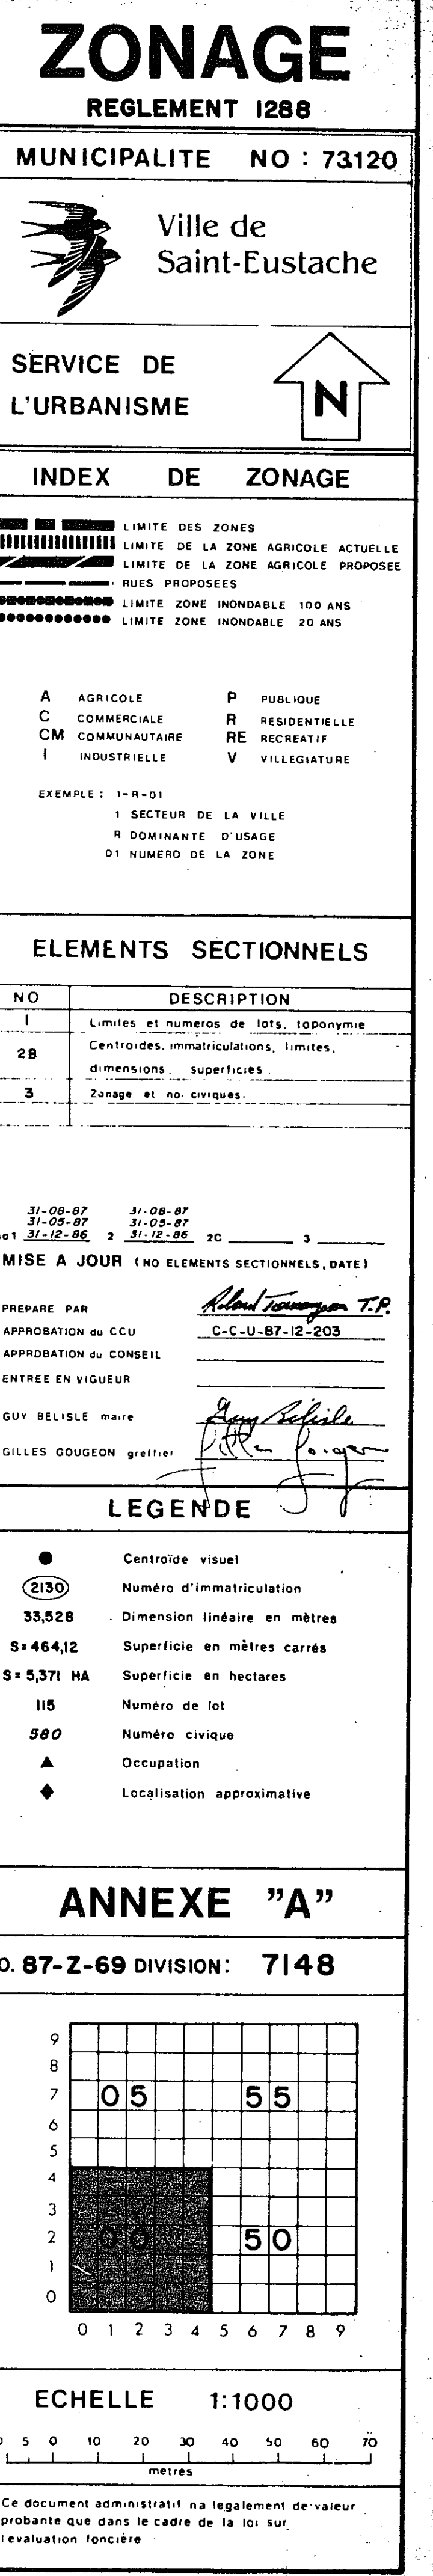 ZONAGE
REGLEMENT 1288
MUNICIPALITE NO : 73120
Ville de
Saint-Eustache
SERVICE DE
L'URBANISME
N
INDEX DE ZONAGE
LIMITE DES ZONES
LIMITE DE LA ZONE AGRICOLE ACTUELLE
LIMITE DE LA ZONE AGRICOLE PROPOSEE
RUES PROPOSEES
LIMITE ZONE INONDABLE 100 ANS
LIMITE ZONE INONDABLE 20 ANS
A AGRICOLE P PUBLIQUE
C COMMERCIALE R RESIDENTIELLE
CM COMMUNAUTAIRE RE RECREATIF
I INDUSTRIELLE V VILLEGIATURE
EXEMPLE : 1-R-01
1 SECTEUR DE LA VILLE
R DOMINANTE D'USAGE
01 NUMERO DE LA ZONE
ELEMENTS SECTIONNELS
NO DESCRIPTION
1 Limites et numeros de lots, toponymie
2B Centroides, immatriculations, limites,
dimensions, superficies
3 Zonage et no. civiques.
31-08-87 31-08-87
31-05-87 31-05-87
1 31-12-86 2 31-12-86 2C 3
MISE A JOUR (NO ELEMENTS SECTIONNELS, DATE)
PREPARE PAR T.P.
APPROBATION du CCU C-C-U-87-12-203
APPROBATION du CONSEIL
ENTREE EN VIGUEUR
GUY BELISLE maire Guy Bélisle
GILLES GOUGEON greffier
LEGENDE
Centroïde visuel
2130 Numéro d'immatriculation
33,528 Dimension linéaire en mètres
S=464,12 Superficie en mètres carrés
S=5,371 HA Superficie en hectares
115 Numéro de lot
580 Numéro civique
Occupation
Localisation approximative
ANNEXE "A"
O. 87-Z-69 DIVISION: 7148
9
8
7 05 55
6
5
4
3
2 00 50
1
0
0 1 2 3 4 5 6 7 8 9
ECHELLE 1:1000
5 0 10 20 30 40 50 60 70
metres
Ce document administratif na legalement de valeur
probante que dans le cadre de la loi sur
levaluation foncière